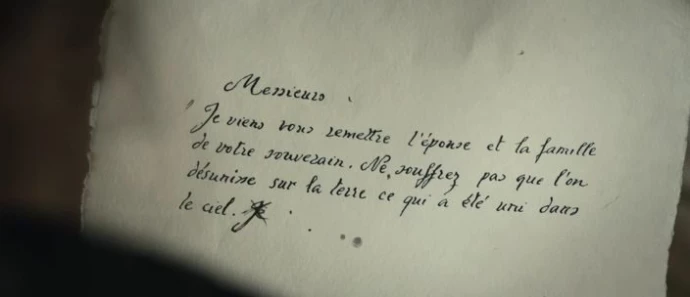 Messieurs,
Je viens vous remettre l'épouse et la famille
de votre souverain. Ne souffrez pas que l'on
désunisse sur la terre ce qui a été uni dans
le ciel.